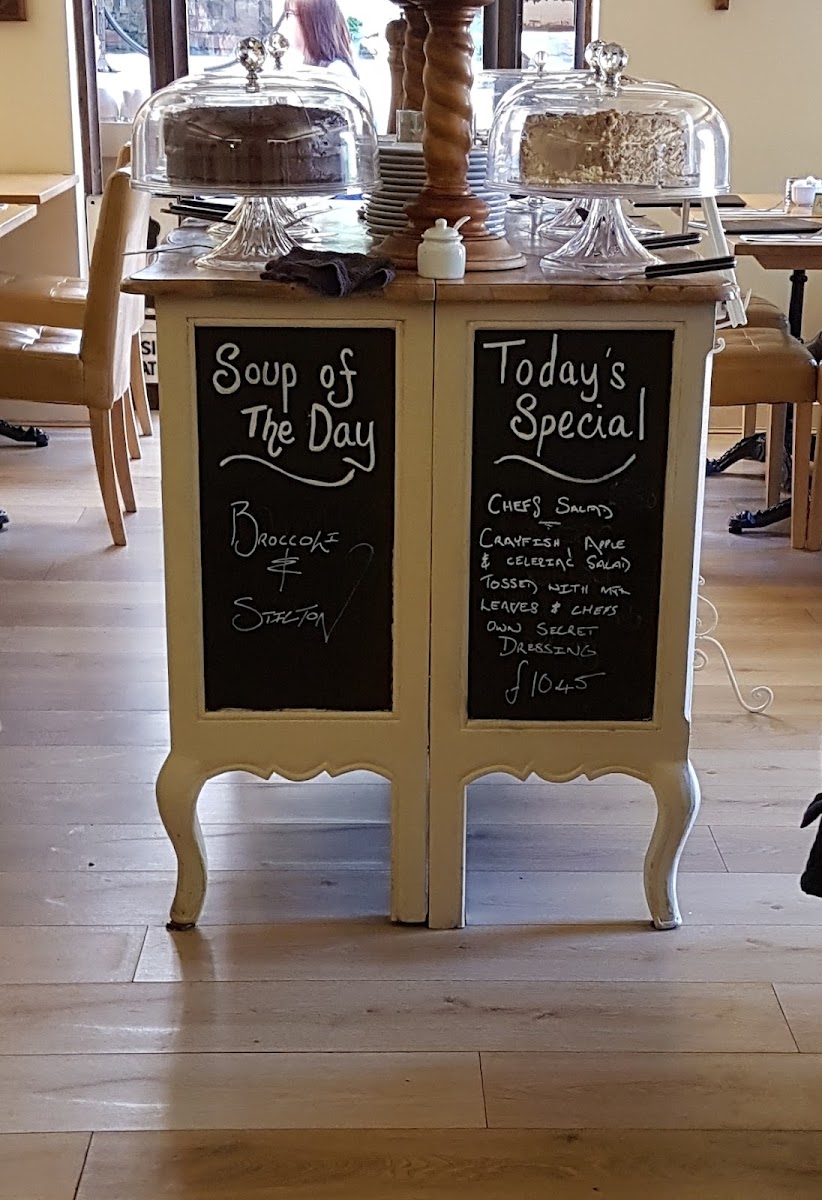 Soup of
The Day
Broccoli
&
Stilton
Today's
Special
Chefs Salad
Crayfish, Apple
& celeriac Salad
Tossed with mix
Leaves & chefs
own secret
Dressing
£10.45
SI
AT